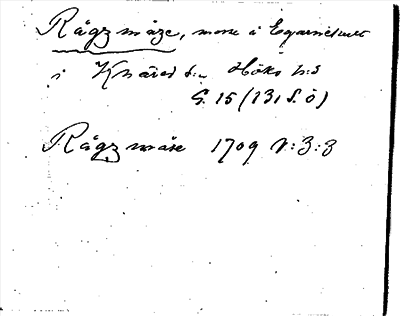 Rågz måze, mosse å Egarnelserne
i Knäred s:n Höks h:d
G. 15 (131 S. ö)
Rågz måse 1709 V:3:3